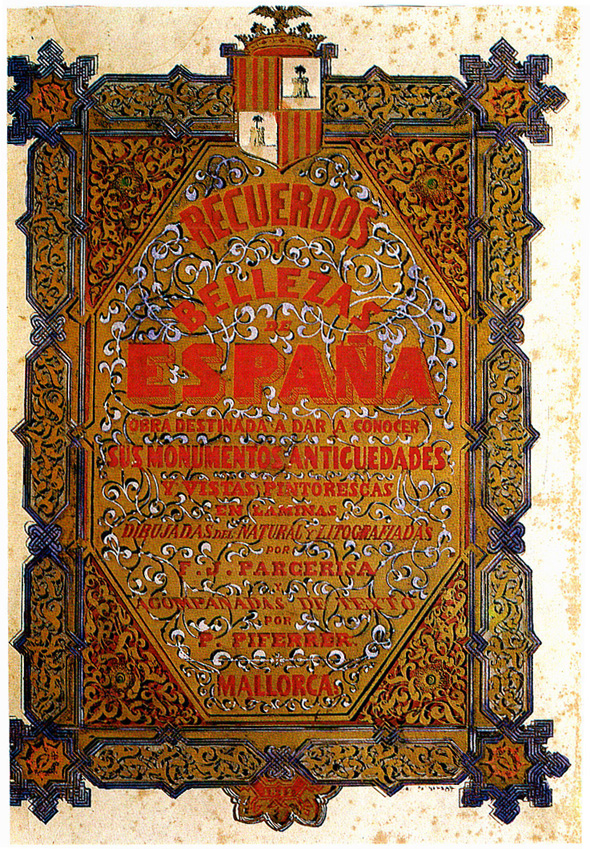 RECUERDOS
Y
BELLEZAS
DE
ESPAÑA
OBRA DESTINADA A DAR A CONOCER
SUS MONUMENTOS ANTIGUEDADES
Y VISTAS PINTORESCAS
EN LAMINAS
DIBUJADAS DEL NATURAL Y LITOGRAFIADAS
POR
F. J. PARCERISA
ACOMPAÑADAS DE TEXTO
POR
P. PIFERRER
MALLORCA
1842